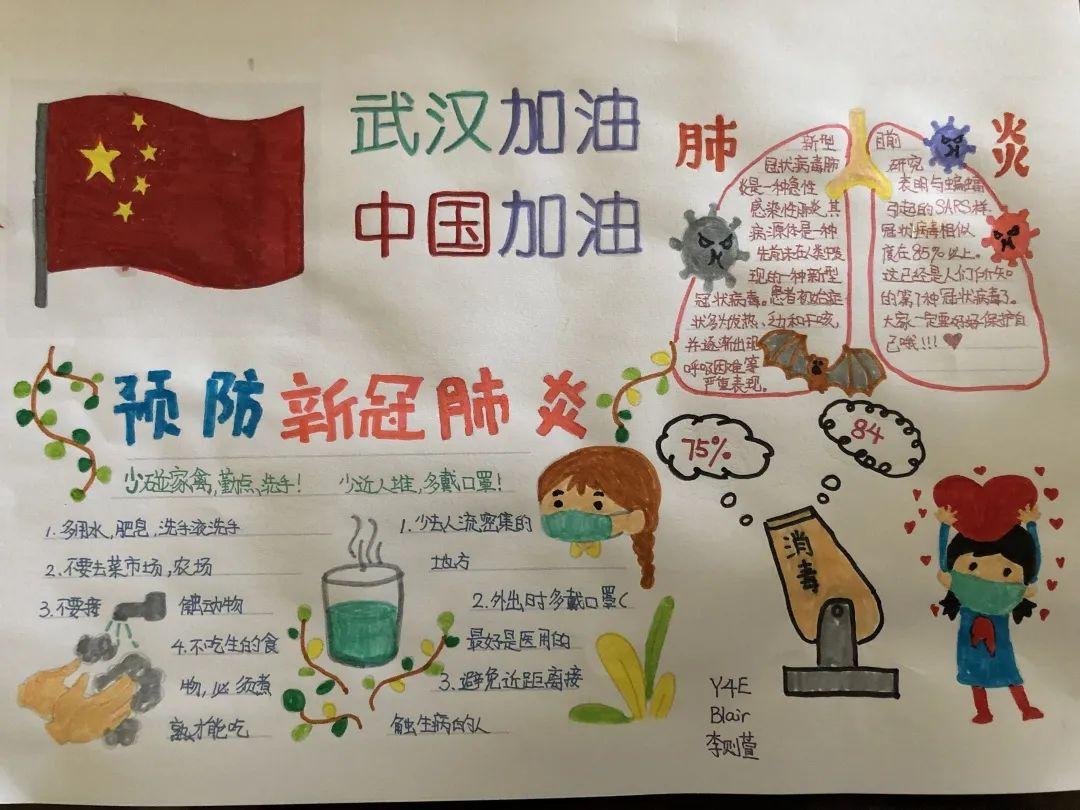 武汉加油
中国加油
肺 炎
新型
冠状病毒肺
炎是一种急性
感染性肺炎,其
病源体是一种
先前未在人类中发
现的一种新型
冠状病毒。患者初始症
状多为发热、乏力和干咳,
并逐渐出现
呼吸困难等
严重表现。
目前
研究
表明与蝙蝠
引起的SARS样
冠状病毒相似
度在85%以上。
这已经是人们所知
的第7种冠状病毒了。
大家一定要好好保护自
己哦!!!
预防新冠肺炎
少碰家禽,勤点洗手!
少近人堆,多戴口罩!
1.多用水,肥皂,洗手液洗手
2.不要去菜市场,农场
3.不要接 触动物
4.不吃生的食
物,必须煮
熟才能吃
1.少去人流密集的
地方
2.外出时多戴口罩(
最好是医用的
3.避免近距离接
触生病的人
75%
84
消毒
Y4E
Blair
李则萱